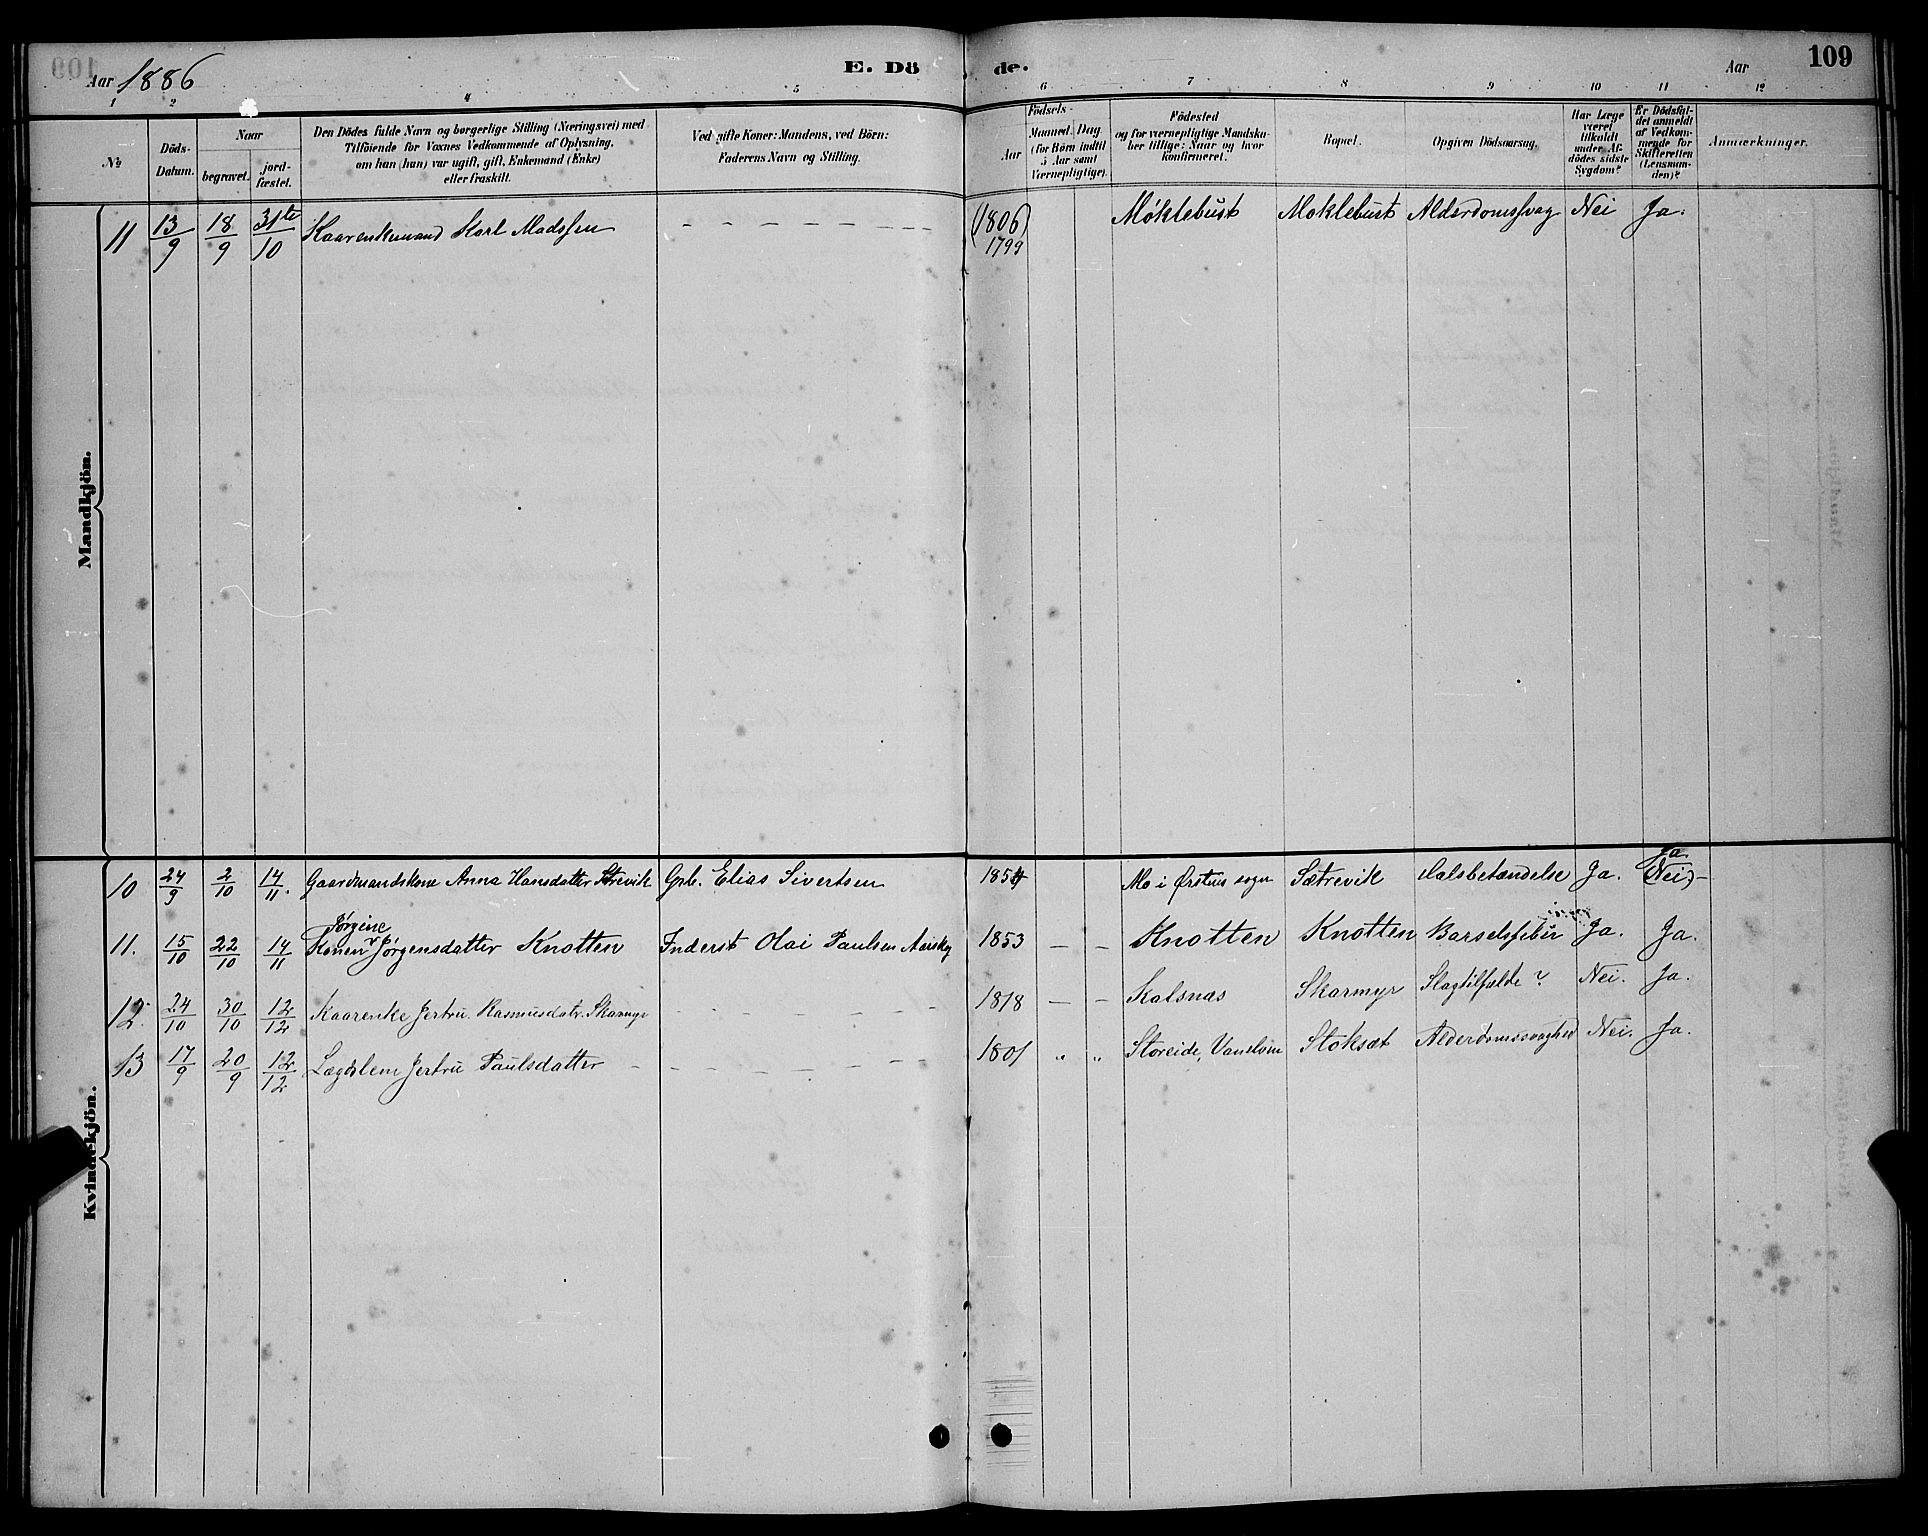 Aar 1886
E. Döde.
Aar
109
1 2 4 5 6 7 8 9 10 11 12
No
Döds-Datum.
Naar
begravet.
jordfæstet.
Den Dödes fulde Navn og borgerlige Stilling (Næringsvei) med
Tilföiende for Voxnes Vedkommende af Oplysning,
om han (hun) var ugift, gift, Enkemand (Enke)
eller fraskilt.
Ved gifte Koner: Mandens, ved Börn:
Faderens Navn og Stilling.
Födsels-
Aar
Maaned. Dag
(for Börn indtil
5 Aar samt
Værnepligtige).
Födested
og for værnepligtige Mandskaber tillige: Naar og hvor
konfirmeret.
Bopæl.
Opgiven Dödsaarsag.
Har Læge
været
tilkaldt
under Afdödes sidste
Sygdom?
Er Dödsfaldet anmeldt
af Vedkommende for
Skifteretten
(Lensmanden)?
Anmærkninger.
Mandkjön.
11 13/9 18/9 31te/10 Kaarenkemand Karl Madssen - - - - - (1806) 1799 Møklebust Moklebust Alderdomssvag Nei Ja.
Kvindekjön.
10 24/9 2/10 14/11. Gaardmandskone Anna Hansdatter Strevik Grb. Elias Sivertsen 1854 Mo i Ørstens sogn Sætrevik Halsbetændelse Ja. Ja (Nei)-
11. 15/10 22/10 14/11 Konen Jørgine Jørgensdatter Knotten Inderst Olai Paulsen 1853 - - Knotten Knotten Barselsfeber Ja. Ja.
12. 24/10 30/10 12/12 Kaarenke Jertru Rasmusdatr. Skarmyr - - - - - 1818 - - Kalsnæs Skarmyr Slagtilfælde? Nei. Ja.
13 17/9 20/9 12/12 Lægdslem Jertru Paulsdatter - - - - - 1801 " " Storeide, Vanelven Stoksæt Alderdomssvaghed Nei. Ja.